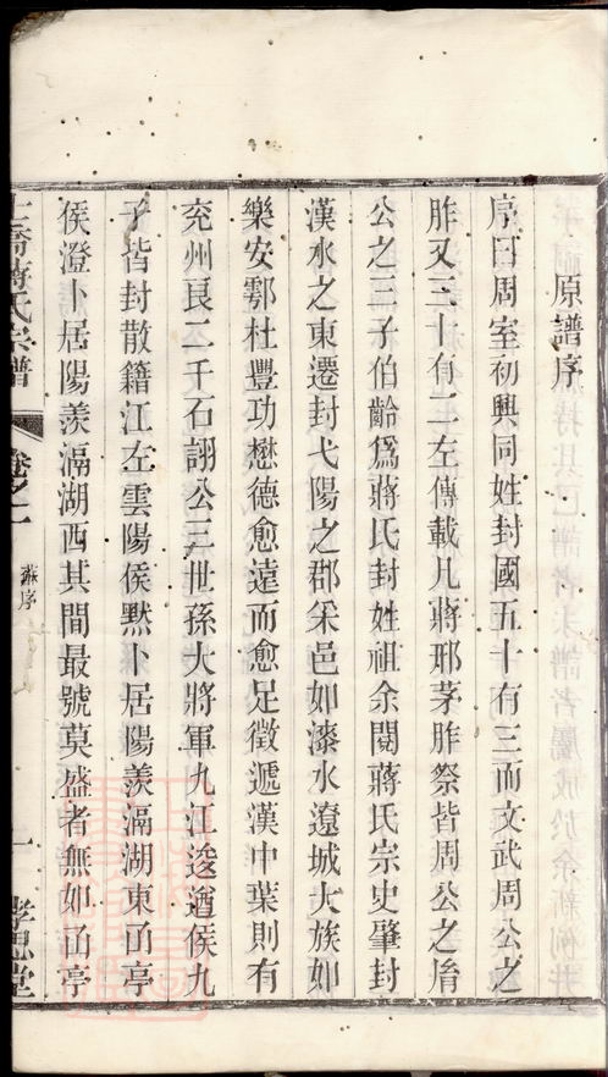 原譜序
序曰周室初興同姓封國五十有三而文武周公之
胙又三十有二左傳載凡蔣邢茅胙祭皆周公之胤
公之三子伯齡爲蔣氏封姓祖余閱蔣氏宗史肇封
漢水之東遷封弋陽之郡采邑如漆水遼城大族如
樂安鄠杜豐功懋德愈遠而愈足徵遞漢中葉則有
兖州良二千石詡公三世孫大將軍九江逡遒侯九
子皆封散籍江左雲陽侯默卜居陽羨滆湖東𠚑亭
侯澄卜居陽羨滆湖西其間最號莫盛者無如𠚑亭
蔣氏宗譜
卷之一
蘇序
一
孝思堂